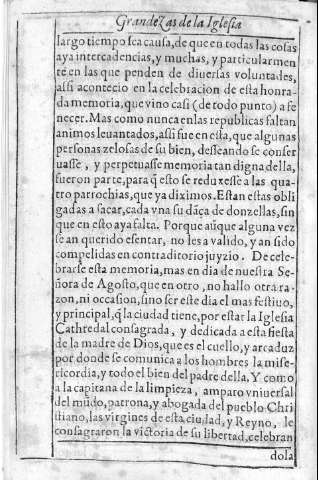 Grandezas de la Iglesia
largo tiempo sea causa, de que en todas las cosas
aya intercadencias, y muchas, y particularmen
te en las que penden de diuersas voluntades,
assi acontecio en la celebracion de esta honra-
da memoria, que vino casi (de todo punto) a fe
necer. Mas como nunca en las republicas faltan
animos leuantados, assi fue en esta, que algunas
personas zelosas de su bien, desseando se conser
uasse, y perpetuasse memoria tan digna della,
fueron parte, para q̃ esto se reduxesse a las qua-
tro parrochias, que ya diximos. Estan estas obli
gadas a sacar, cada vna su dãça de donzellas, sin
que en esto aya falta. Porque aũque alguna vez
se an querido esentar, no les a valido, y an sido
compelidas en contraditorio juyzio. De cele-
brarse esta memoria, mas en dia de nuestra Se-
ñora de Agosto, que en otro, no hallo otra ra-
zon, ni occasion, sino ser este dia el mas festiuo,
y principal, q̃ la ciudad tiene, por estar la Iglesia
Cathredal consagrada, y dedicada a esta fiesta
de la madre de Dios, que es el cuello, y arcaduz
por donde se comunica a los hombres la mise-
ricordia, y todo el bien del padre della, Y como
a la capitana de la limpieza, amparo vniuersal
del mũdo, patrona, y abogada del pueblo Chri
stiano, las virgines de esta ciudad, y Reyno, le
consagraron la victoria de su libertad, celebran
dola